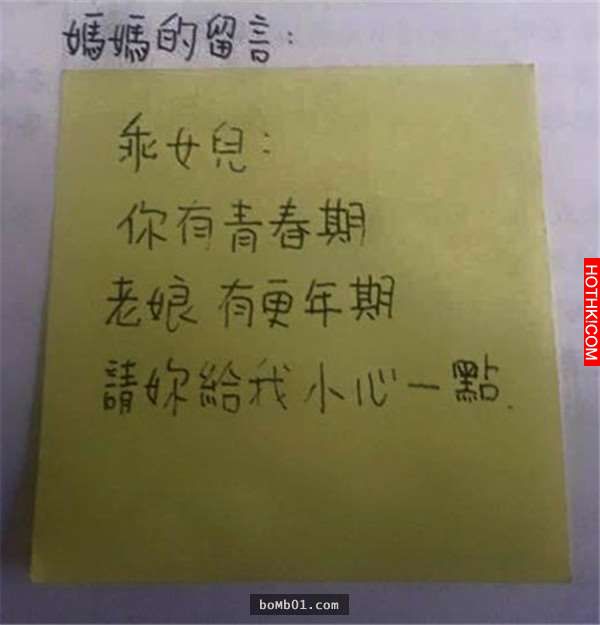 媽媽的留言:
乖女兒:
你有青春期
老娘有更年期
請妳給我小心一點.
HOTHK!COM
boMb01.com